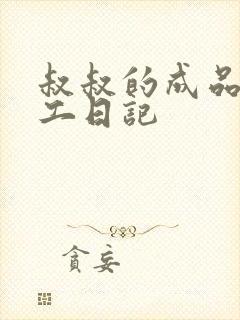 叔叔的成品
工日記
貪妄